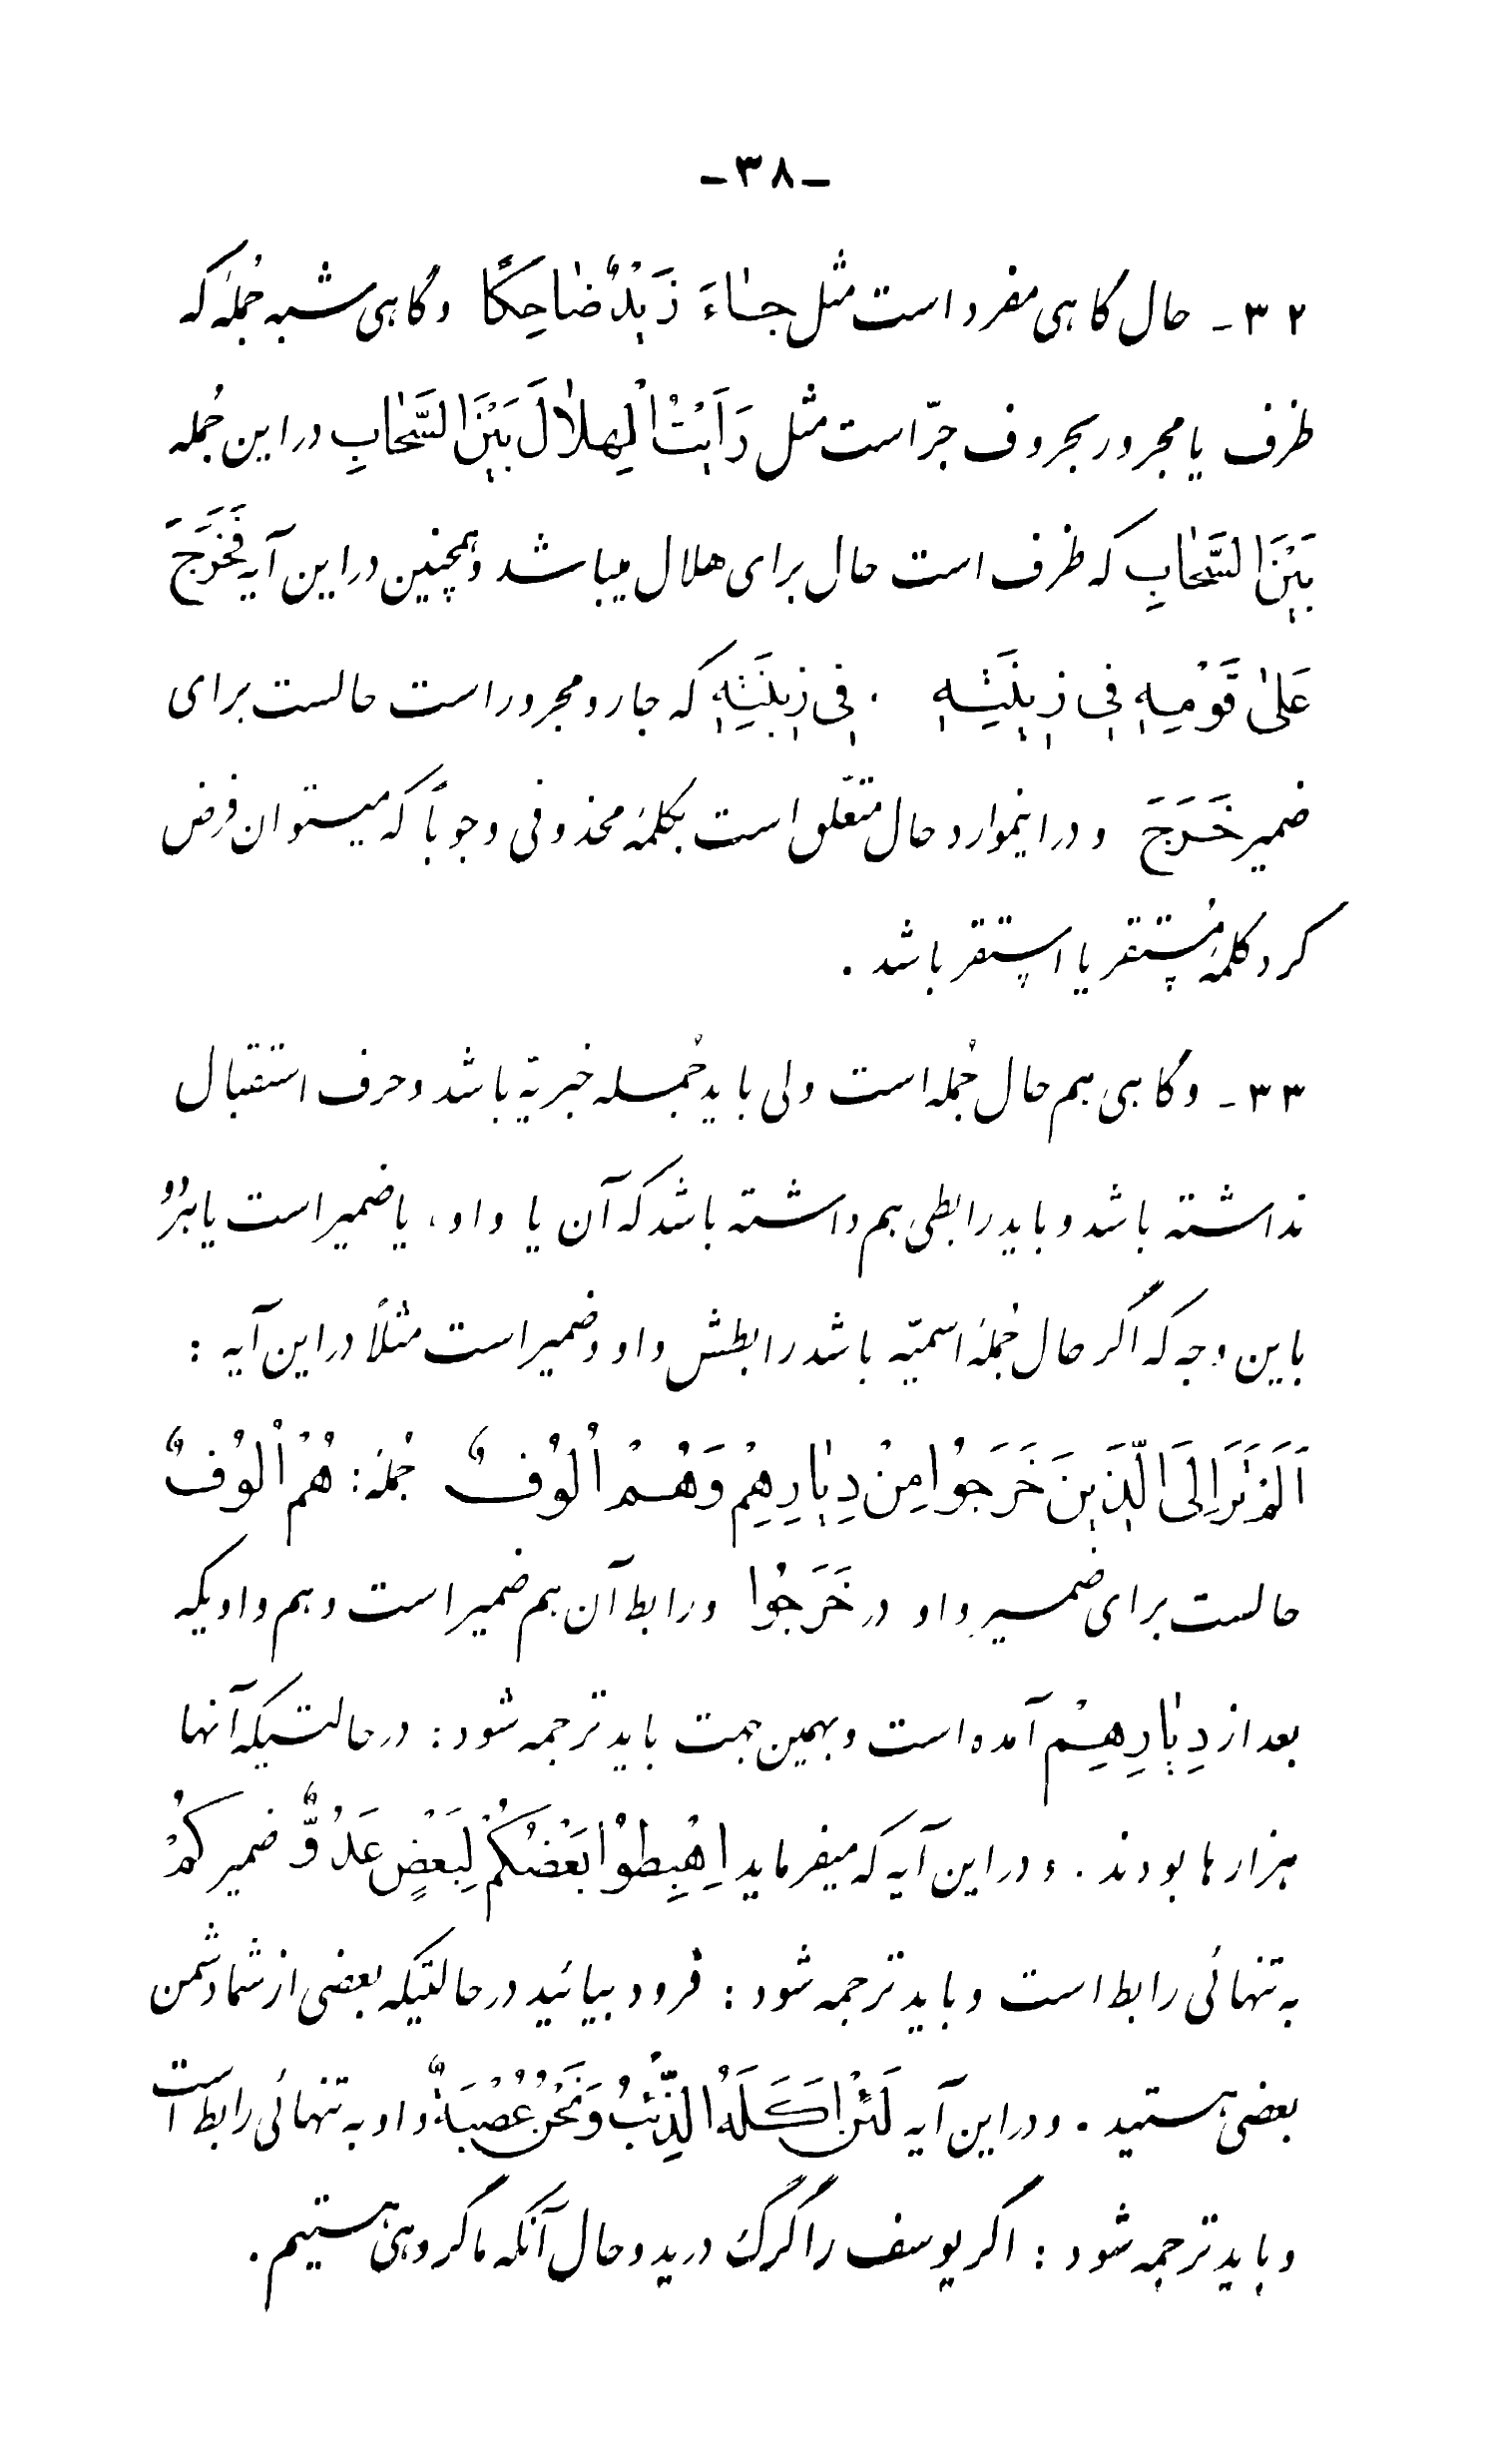 -۳۸-
۳۲- حال گاهی مفرد است مثل جٰاءَ زَیْدٌ ضٰاحِکًا وگاهی شبه جُملهٔ که
ظرف یا مجرور بحروف جرّ است مثل رَاَیْتُ الْهِلاٰلَ بَیْنَ السَّحٰابِ در این جُمله
بَیْنَ السَّحٰابِ که ظرف است حال برای هلال میباشد وهمچنین در این آیه فَخَرَجَ
عَلیٰ قَوْمِهِ فِی زِینَتِهِ . فِی زِینَتِهِ که جار و مجرور است حالست برای
ضمیر خَرَجَ و در اینموارد حال متعّلق است بکلمهٔ محذوفی وجوباً که میستوان فرض
کرد کلمهٔ مُستقر یا استقر باشد .
۳۳- وگاهی هم حال جُمله است ولی باید جُمله خبریّه باشد وحرف استقبال
نداشته باشد و باید رابطی هم داشته باشد که آن یا واو، یا ضمیر است یا هردُو
باین وجه که اگر حال جُملهٔ اسمیّه باشد رابطش واو وضمیر است مثلاً در این آیه :
اَلَمْ تَرَ اِلَی الَّذِینَ خَرَجُوا مِنْ دِیٰارِهِمْ وَهُمْ اُلُوُفٌ جُملهٔ : هُمْ اُلُوُفٌ
حالست برای ضمیر واو در خَرَجُوا ورابط آن هم ضمیر است وهم واویکه
بعد از دِیٰارِهِمْ آمده است وبهمین جهت باید ترجمه شود : درحالتیکه آنها
هزارها بودند . و در این آیه که میفرماید اِهْبِطُوْا بَعْضُکُمْ لِبَعْضٍ عَدُوٌّ ضمیر کُمْ
به تنهائی رابط است و باید ترجمه شود : فرود بیائید درحالتیکه بعضی از شما دشمن
بعضی هستید . و در این آیه لَئِنْ اَکَلَهُ الذِّئْبُ وَنَحْنُ عُصْبَةٌ واو به تنهائی رابط است
وباید ترجمه شود : اگر یوسف را گرگ درید وحال آنکه ماگروهی هستیم .